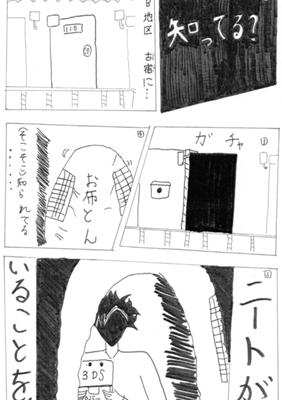 知ってる?
B地区
古宿に…
110
ガチャ
お布とん
(そこそこ)知られてる………
ニートが
いることを
3DS